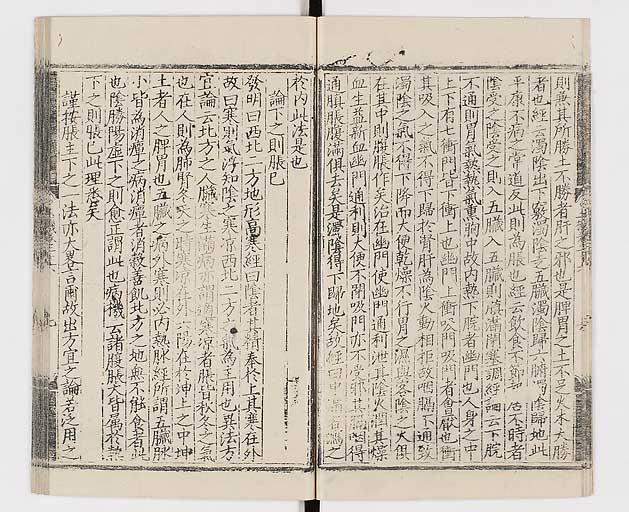 則兼其所勝土不勝者肝之邪也是脾胃之土不足火木大勝
者也經云濁陰出下竅濁陰走五臟濁陰歸六腑濁陰歸地此
平康不病之常道反此則為脹也經云飲食不節起居不時者
陰受之陰受之則入五臟入五臟則䐜滿閉塞調經論云下脘
不通則胃氣熱熱氣熏胸中故內熱下脘者幽門也人身之中
上下有七衝門皆下衝上也幽門上衝吸門吸門者會厭也衝
其吸入之氣不得下歸於腎肝為陰火動相拒故咽膈不通致
濁陰之氣不得下降而大便乾燥不行胃之濕與客陰之火俱
在其中則腹脹作矣治在幽門使幽門通利泄其陰火潤其燥
血生益新血幽門通利則大便不閉吸門亦不受邪其膈咽得
通䐜脹腹滿俱去矣是濁陰得下歸地矣故經曰中滿者瀉之
於內此法是也
論下之則脹已
發明曰西北二方地形高寒經曰陰者其精奉於上其寒在外
故曰寒則氣浮知陰之寒涼西北二方之氣為主用也異法方
宜論云北方之人臟寒生滿病亦謂適寒涼者脹皆秋冬之氣
也在人則為肺腎冬天之時寒涼在外六陽在於坤土之中坤
土者人之脾胃也五臟之病外寒則必內熱脉經所謂五臟脉
小皆為消癉之病消癉者消穀善飢北方之地無不能食者此
也陰勝陽虛下之則愈正謂此也病機云諸腹脹大皆屬於熱
下之則脹已此理悉矣
謹按脹主下之一法亦大畧言爾故出方宜之論若泛用之